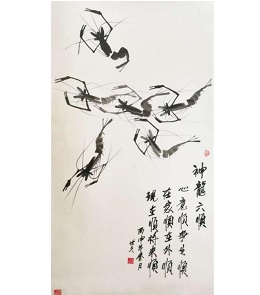 神龍六順
心意順 順
在家順在外順
現在順將來順
丙申 月